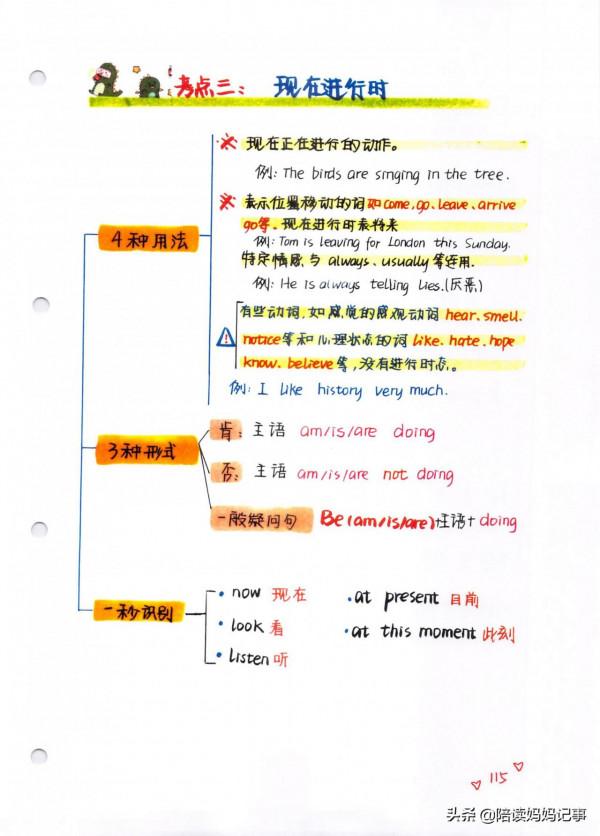 考点三： 现在进行时
现在正在进行的动作。
例: The birds are singing in the tree.
4种用法
表示位置移动的词如come、go、leave、arrive
go等。现在进行时表将来
例: Tom is leaving for London this Sunday.
特定情感 与 always、usually 等连用.
例: He is always telling lies.(厌恶)
有些动词, 如感觉的感观动词 hear、smell、
notice等和心理状态的词 like、hate、hope
know、believe等, 没有进行时态。
例: I like history very much.
3种形式
肯: 主语 am/is/are doing
否: 主语 am/is/are not doing
一般疑问句 Be(am/is/are)+主语+doing
一秒识别
now 现在
look 看
listen 听
at present 目前
at this moment 此刻
115
头条 @陪读妈妈记事